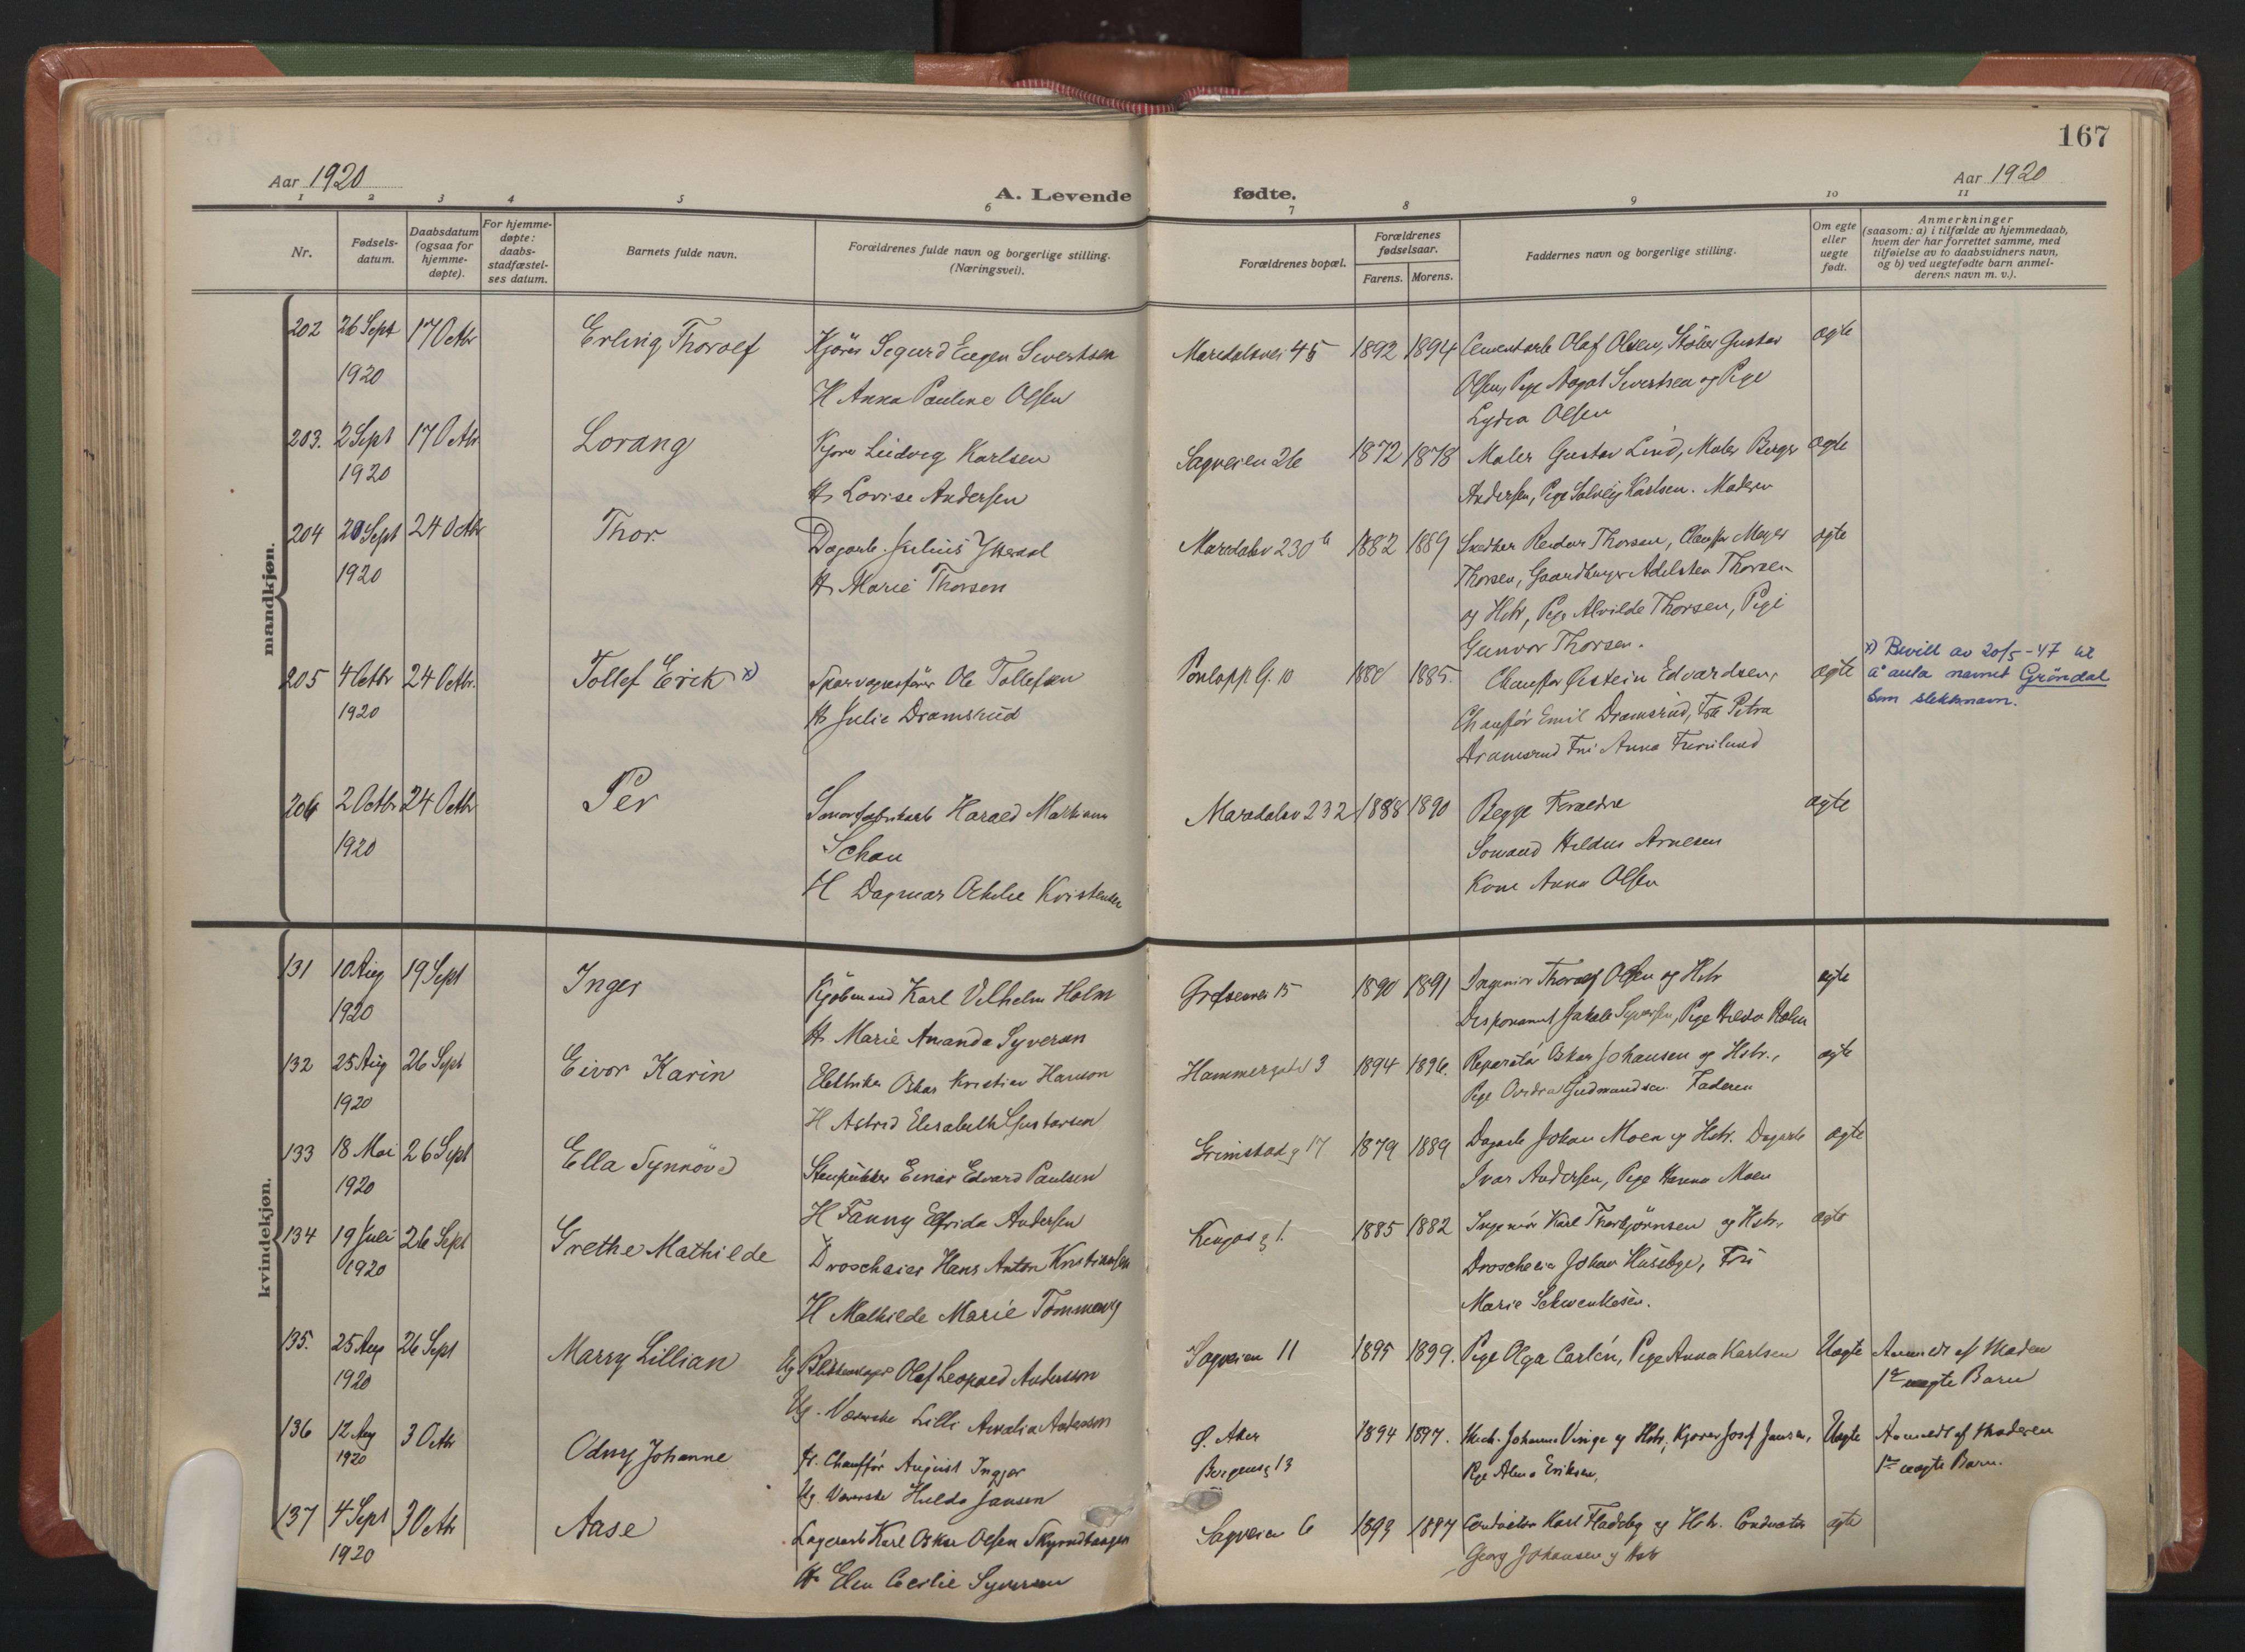 167
Aar 1920
A. Levende fødte.
Aar 1920
1 2 3 4 5 6 7 8 9 10 11
Nr.
Fødsels-
datum.
Daabsdatum
(ogsaa for
hjemme-
døpte).
For hjemme-
døpte:
daabs-
stadfæstel-
ses datum.
Barnets fulde navn.
Forældrenes fulde navn og borgerlige stilling.
(Næringsvei).
Forældrenes bopæl.
Forældrenes
fødselsaar.
Farens. Morens.
Faddernes navn og borgerlige stilling.
Om egte
eller
uegte
født.
Anmerkninger
(saasom: a) i tilfælde av hjemmedaab,
hvem der har forrettet samme, med
tilføielse av to daabsvidners navn,
og b) ved uegtefødte barn anmel-
derens navn m. v.).
mandkjøn.
202 26 Sept 17 Octbr Erling Thorolf Kjörer Sigurd Eugen Sivertsen Maridalsvei 45 1892 1894 Cementarb Olaf Olsen, Gustav ægte
1920 H Anna Pauline Olsen Olsen, Pige Aagot Sivertsen og Pige
Lydia Olsen
203. 2 Sept 17 Octbr Lorang Kjører Ludvig Karlsen Sagveien 26 1872 1878 Maler Gustav Lind, Maler Birger ægte
1920 H Lovise Andersen Andersen, Pige Solveig Karlsen. Moderen
204 20 Sept 24 Octbr Thor. Dagarb. Julius Maridalsv 230 b 1882 1889 Snedker Reidar Thorsen, Chauffør Meyer ægte
1920 H. Marie Thorsen Thorsen, Gaardbruger Adelsten Thorsen
og Hstr, Pige Alvilde Thorsen, Pige
Gunvor Thorsen.
205 4 Octbr 24 Octbr. Tollef Erik x) Sporvognsfører Ole Tollefsen G. 10 1885. Chauffør Øistein Edvardsen, ægte
1920 H Julie Dramsrud Chauffør Emil Dramsrud, Petra
Dramsrud Fru Anna
x) Bevill av 20/5-47 til
å anta navnet Gröndal
som slektsnavn.
206 2 Octbr 24 Octbr Per Harald Maridalsv 232 1888 1890 Begge Foræeldre ægte
1920 Schou Sömand Arnesen
H Dagmar Kristensen Kone Anna Olsen
kvindekjøn.
131 10 Aug 19 Sept Inger Kjöbmand Karl Vilhelm Holm Grefsenvei 15 1890 1891 Ingeniør Thoralf Olsen og Hstr ægte
1920 H. Marie Amanda Syversen Disponent Jakob Syversen, Pige Hilda Holm
132 25 Aug 26 Sept Eivor Karin Elektriker Oskar Kristian Hanson Hammergata 3 1894 1896. Reparatør Oskar Johansen og Hstr., ægte
1920 H Astrid Elisabeth Gustavsen Pige Gudmundsen Faderen
133 18 Mai 26 Sept Ella Synnöve Stenpukker Einar Edvard Paulsen Grimstad g 17 1879 1889 Dagarb Johan Moen og Hstr. Dagarb ægte
1920 H Fanny Elfrida Andersen Ivar Andersen, Pige Moen
134 19 Juli 26 Sept Grethe Mathilde Droscheeier Hans Anton Kristiansen g 1. 1885 1882 Ingeniør Karl Thorbjörnsen og Hstr. ægte
1920 H Mathilde Marie Droscheeier Johan Huseby, Fru
Marie
135. 25 Aug 26 Sept Marry Lillian Ug Blikkenslager Olaf Leopold Andersson Sagveien 11 1895 1899. Pige Olga Carlén, Pige Anna Karlsen Uægte Anmeldt af Moderen
1920 Ug. Væverske Lilli Amalia Andersson 1ste uægte Barn
136 12 Aug 3 Octbr Odny Johanne Fr. Chauffør August Ingjer Ø. Aker 1894 1897. Johannes og Hstr, Kjører Josef Jansen, Uægte Anmeldt af Moderen
1920 Ug. Væverske Hulda Jansen Bergensg 13 Pige Alma Eriksen, 1ste uægte Barn.
137 4 Sept 3 Octbr Aase Lagerarb Karl Oskar Olsen Sagveien 6 1893 1897 Conduktør Karl Fladeby og Hstr. Conduktør ægte
1920 H. Elen Cecilie Syversen Georg Johansen og Hstr